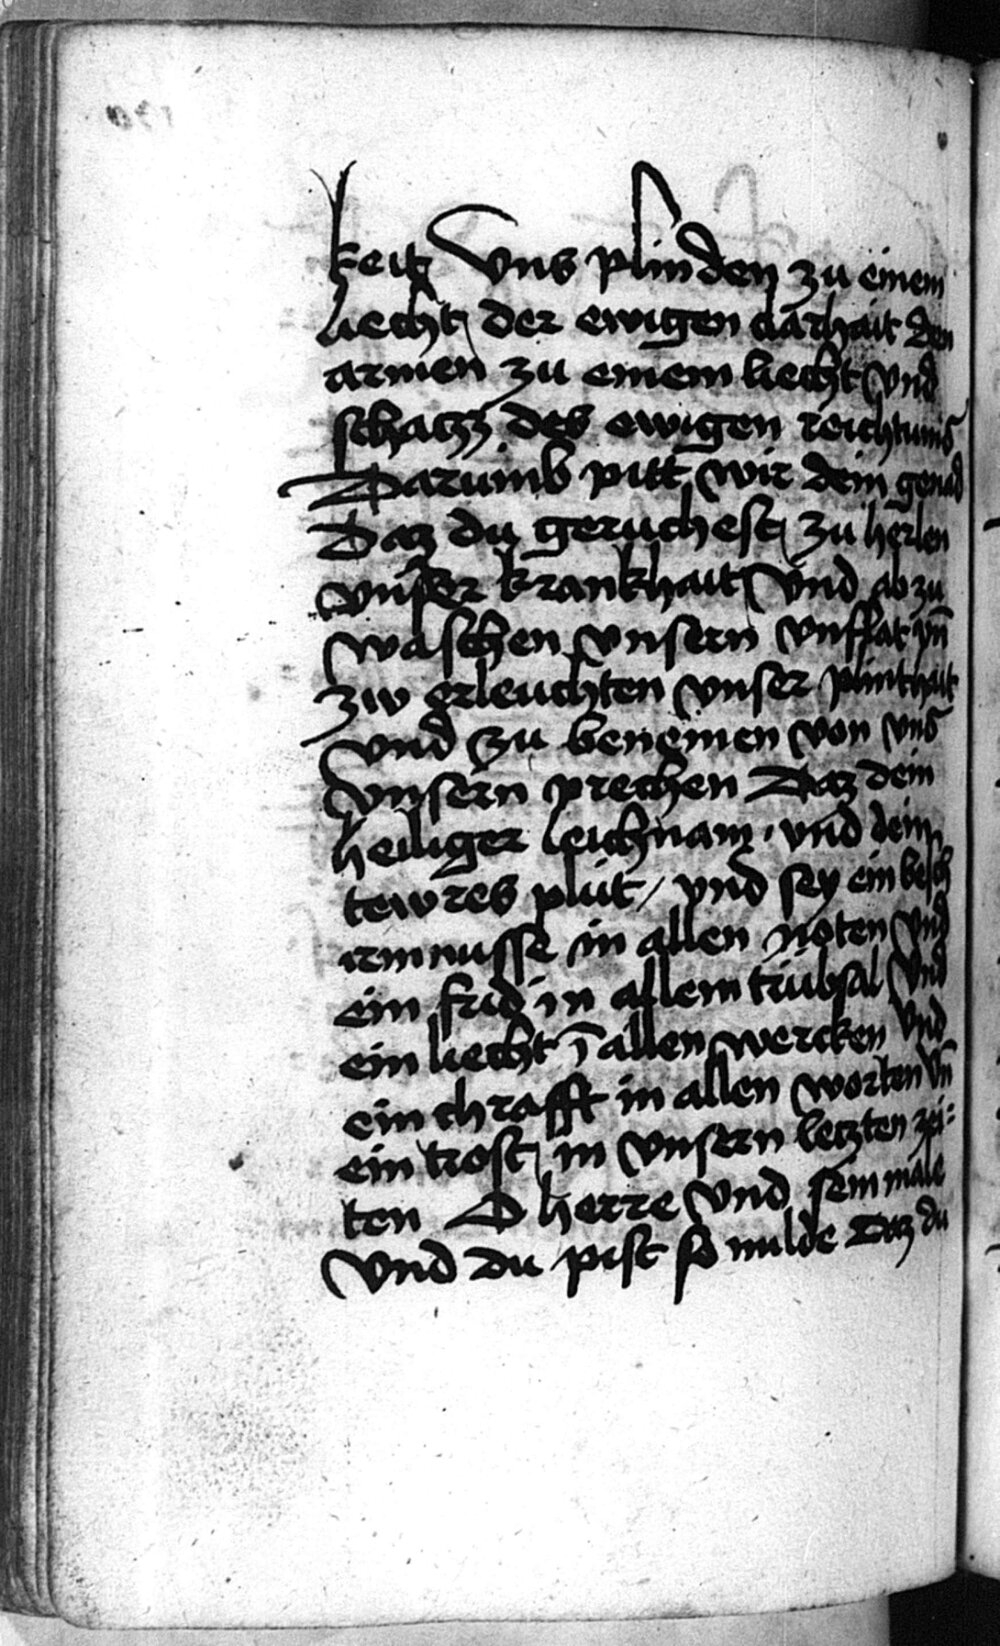 keit Vns plinden zu einem
liecht der ewigen clarhait den
armen zu einem liecht Vnd
schatz des ewigen reichtums
Darumb pitt wir dein genad
Daz du geruchest zu heylen
vnser krankhait Vnd ab zu
waschen vnsern vnfflat vn̄
zw erleuchten vnser plinthait
vnd zu benemen von vns
vnsern prechen Daz dein
heiliger leichnam · vnd dein
tewres plut / vnd sey ein besch
irmnusse in allen noten Vnd
ein frid in allem trübsal Vnd
ein liecht ī allen wercken Vnd
ein chrafft in allen worten Vn̄
ein trost in vnsern letzten zei=
ten O herre Vnd sein male
Vnd du pist so milde Daz du